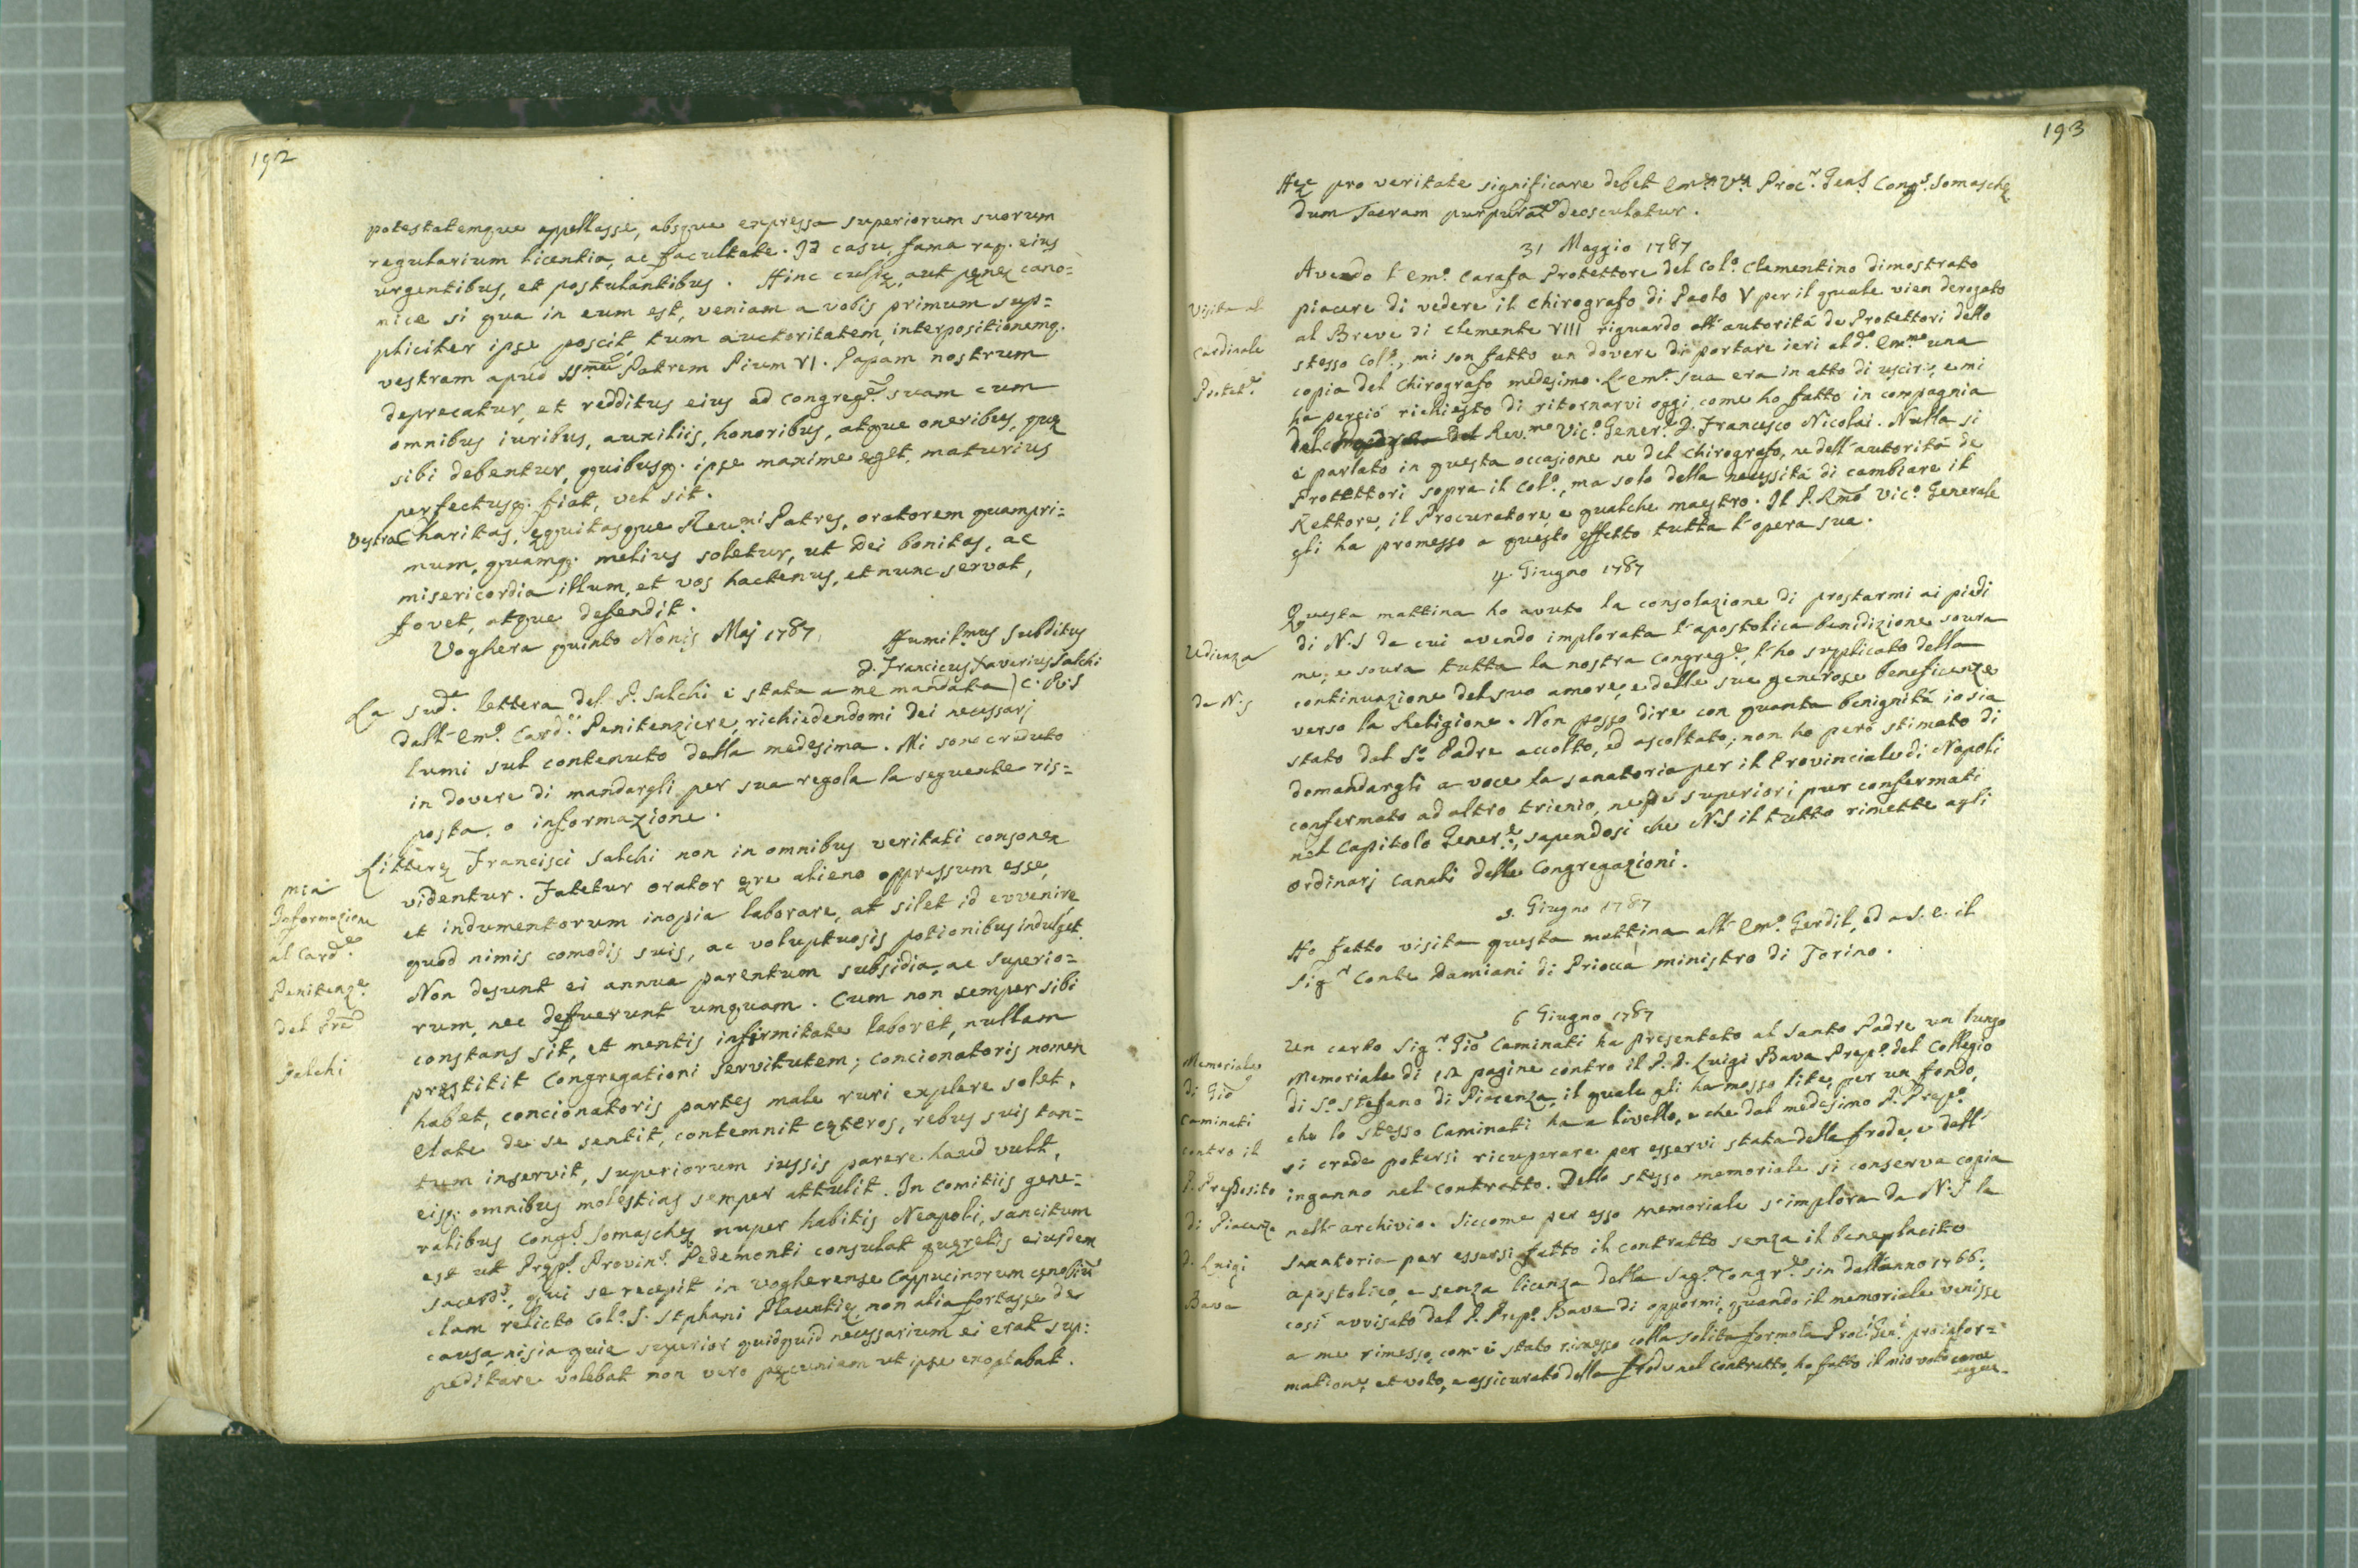 192
potestatemque appellasse, absque expressa superiorum suorum
regularium licentia, ac facultate. Id casu, fama rag. eius
urgentibus, et postulantibus. Hinc culpę, aut pęnę cano=
nice si qua in eum est, veniam a vobis primum sup=
pliciter ipse poscit, tum auctoritatem, interpositionemq.
vestram apud SSmũ Patrem Pium VI. Papam nostrum
deprecatur, et redditus eius ad congreg.ẽ suam cum
omnibus iuribus, auxiliis, honoribus, atque oneribus, quę
sibi debentur, quibusq. ipse maxime eget, maturius
perfectusq. fiat, vel sit.
Vestra Charitas, ęquitasque Reu.mi Patres, oratorem quampri=
mum, quamq. melius soletur, ut Dei bonitas, ac
misericordia illum, et vos hactenus, et nunc servat,
fovet, atque defendit.
Voghera quinto Nonis Maj 1787.
Humil.mus Subditus
D. Franciscus Xaverius Salchi
C. R. S
La sud.e lettera del P. Salchi è stata a me mandata
dall' Em.o Card.e Penitenziere, richiedendomi dei necessarj
lumi sul contenuto della medesima. Mi sono creduto
in dovere di mandargli per sua regola la seguente ris=
posta, o informazione.
mia
Informazione
al Card.e
Penitenz.e
del Pre
Salchi
Litterę Francisci Salchi non in omnibus veritati consonę
videntur. Fatetur orator ęre alieno oppressum esse,
et indumentorum inopia laborare, at silet id evvenire
quod nimis comodis suis, ac voluptuosis potionibus indulget.
Non desunt ei annua parentum subsidia, ac superio=
rum, nec defuerunt umquam. Cum non semper sibi
constans sit, et mentis infirmitate laboret, nullam
pręstitit Congregationi servitutem; concionatoris nomen
habet, concionatoris partes male ruri explere solet.
Elate de se sentit, contemnit cęteros, rebus suis tan=
tum inservit, superiorum iussis parere haud vult,
eisq. omnibus molestias semper attulit. In comitiis gene=
ralibus Cong.s Somaschę nuper habitis Neapoli, sancitum
est ut Pręp.s Provin.s Pedemonti consulat querelis eiusdem
sacerd.s, qui se recepit in Vogherense Cappucinorum cęnobiũ
clam relicto Col.o S. Stephani Placentię, non alia fortasse de
causa, nisi quia superior quidquid necessarium ei erat sup=
peditare volebat non vero pęcuniam ut ipse exoptabat.
193
Hęc pro veritate significare debet Em.ę V.ę Proc.r Gen.s Cong.s Somaschę
dum Sacram purpurã deosculatur.
31 Maggio 1787
Visita al
Cardinale
Protet.e
Avendo l' Em.o Carafa Protettore del Col.o Clementino dimostrato
piacere di vedere il chirografo di Paolo V per il quale vien derogato
al Breve di Clemente VIII riguardo all' autorità de Protettori dello
stesso Col.o, mi son fatto un dovere di portare ieri al d.o Em.mo una
copia del Chirografo medesimo. L' Em.a sua era in atto di uscire, e mi
ha perciò richiesto di ritornarvi oggi, come ho fatto in compagnia
del Rev.mo Vic.o Gener.e D. Francesco Nicolai. Nulla si
è parlato in questa occasione nè del Chirografo, nè dell' autorità de
Protettori sopra il Col.o, ma solo della necessità di cambiare il
Rettore, il Procuratore, e qualche maestro. Il P. Rmo Vic.o Generale
gli ha promesso a questo effetto tutta l' opera sua.
4. Giugno 1787
Udienza
da N.S
Questa mattina ho avuto la consolazione di prostarmi ai piedi
di N.S da cui avendo implorata l' apostolica benidizione soura
me, e soura tutta la nostra Congreg.e, l' ho supplicato della
continuazione del suo amore, e delle sue generose beneficenze
verso la Religione. Non posso dire con quanta benignità io sia
stato dal S.o Padre accolto, ed ascoltato; non ho però stimato di
domandargli a voce la sanatoria per il Provinciale di Napoli
confermato ad altro trienio, ne pe superiori pur confermati
nel Capitolo Gener.e, sapendosi che N.S il tutto rimette agli
ordinarj canali delle Congregazioni.
5. Giugno 1787
Ho fatto visita questa mattina all' Em.o Gerdil, ed a S. E. il
Sig.r Conte Damiani di Priocca ministro di Torino.
6 Giugno 1787
Memoriale
di Gio
Caminati
contro il
P. Preposito
di Piacenza
D. Luigi
Bava
Un certo Sig.r Giõ Caminati ha presentato al Santo Padre un lungo
Memoriale di 12 pagine contro il P. D. Luigi Bava Prep.o del Collegio
di S.o Stefano di Piacenza, il quale gli ha mosso lite, per un fondo,
che lo stesso Caminati ha a livello, e che dal medesimo P. Prep.o
si crede potersi ricuperare per esservi stata della frode, e dell'
inganno nel contratto. Dello stesso memoriale si conserva copia
nell' archivio. Siccome per esso memoriale s' implora da N.S la
sanatoria per essersi fatto il contratto senza il beneplacito
apostolico, e senza licenza della Sag.a Congr.e sin dall' anno 1766;
così avvisato dal P. Prep.o Bava di oppormi, quando il memoriale venisse
a me rimesso, com' è stato rimesso colla solita formola Proc.i Gen.i pro infor=
matione, et voto, e assicurato della frode nel contratto, ho fatto il mio voto come
segue.